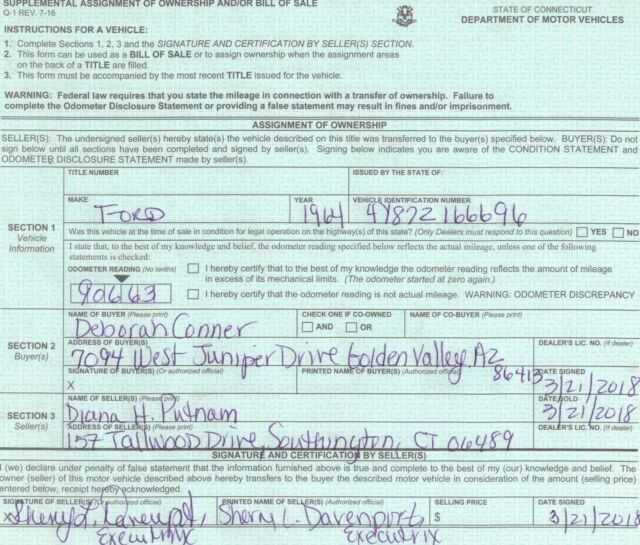 SUPPLEMENTAL ASSIGNMENT OF OWNERSHIP AND/OR BILL OF SALE
Q-1 REV. 7-16
STATE OF CONNECTICUT
DEPARTMENT OF MOTOR VEHICLES
INSTRUCTIONS FOR A VEHICLE:
1. Complete Sections 1, 2, 3 and the SIGNATURE AND CERTIFICATION BY SELLER(S) SECTION.
2. This form can be used as a BILL OF SALE or to assign ownership when the assignment areas
on the back of a TITLE are filled.
3. This form must be accompanied by the most recent TITLE issued for the vehicle.
WARNING: Federal law requires that you state the mileage in connection with a transfer of ownership. Failure to
complete the Odometer Disclosure Statement or providing a false statement may result in fines and/or imprisonment.
ASSIGNMENT OF OWNERSHIP
SELLER(S): The undersigned seller(s) hereby state(s) the vehicle described on this title was transferred to the buyer(s) specified below. BUYER(S): Do not
sign below until all sections have been completed and signed by seller(s). Signing below indicates you are aware of the CONDITION STATEMENT and
ODOMETER DISCLOSURE STATEMENT made by seller(s).
TITLE NUMBER
ISSUED BY THE STATE OF:
SECTION 1
Vehicle
Information
MAKE
YEAR
VEHICLE IDENTIFICATION NUMBER
FORD
1964
4Y87Z166696
Was this vehicle at the time of sale in condition for legal operation on the highway(s) of this state? (Only Dealers must respond to this question) YES NO
I state that, to the best of my knowledge and belief, the odometer reading specified below reflects the actual mileage, unless one of the following
statements is checked:
ODOMETER READING (No tenths)
90663
I hereby certify that to the best of my knowledge the odometer reading reflects the amount of mileage
in excess of its mechanical limits. (The odometer started at zero again.)
I hereby certify that the odometer reading is not actual mileage. WARNING: ODOMETER DISCREPANCY
SECTION 2
Buyer(s)
NAME OF BUYER (Please print)
CHECK ONE IF CO-OWNED
NAME OF CO-BUYER (Please print)
Deborah Conner
AND OR
ADDRESS OF BUYER(S)
DEALER'S LIC. NO. (If dealer)
7094 West Juniper Drive Golden Valley, AZ
86413
SIGNATURE OF BUYER(S) (Or authorized official)
PRINTED NAME OF BUYER(S) (Authorized official)
DATE SIGNED
X
3/21/2018
SECTION 3
Seller(s)
NAME OF SELLER(S) (Please print)
DATE SOLD
Diana H. Putnam
3/21/2018
ADDRESS OF SELLER(S) (Please print)
DEALER'S LIC. NO. (If dealer)
157 Tallwood Drive, Southington, CT 06489
SIGNATURE AND CERTIFICATION BY SELLER(S)
I (we) declare under penalty of false statement that the information furnished above is true and complete to the best of my (our) knowledge and belief. The
owner (seller) of this motor vehicle described above hereby transfers to the buyer the described motor vehicle in consideration of the amount (selling price)
entered below, receipt hereby acknowledged.
SIGNATURE OF SELLER(S) (Or authorized official)
PRINTED NAME OF SELLER(S) (Authorized official)
SELLING PRICE
DATE SIGNED
x
Sherry L. Davenport,
$
3/21/2018
Executrix
Executrix